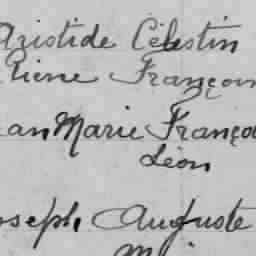 Aristide Célestin
Pierre François
ean Marie Franço
Léon
oseph Auguste